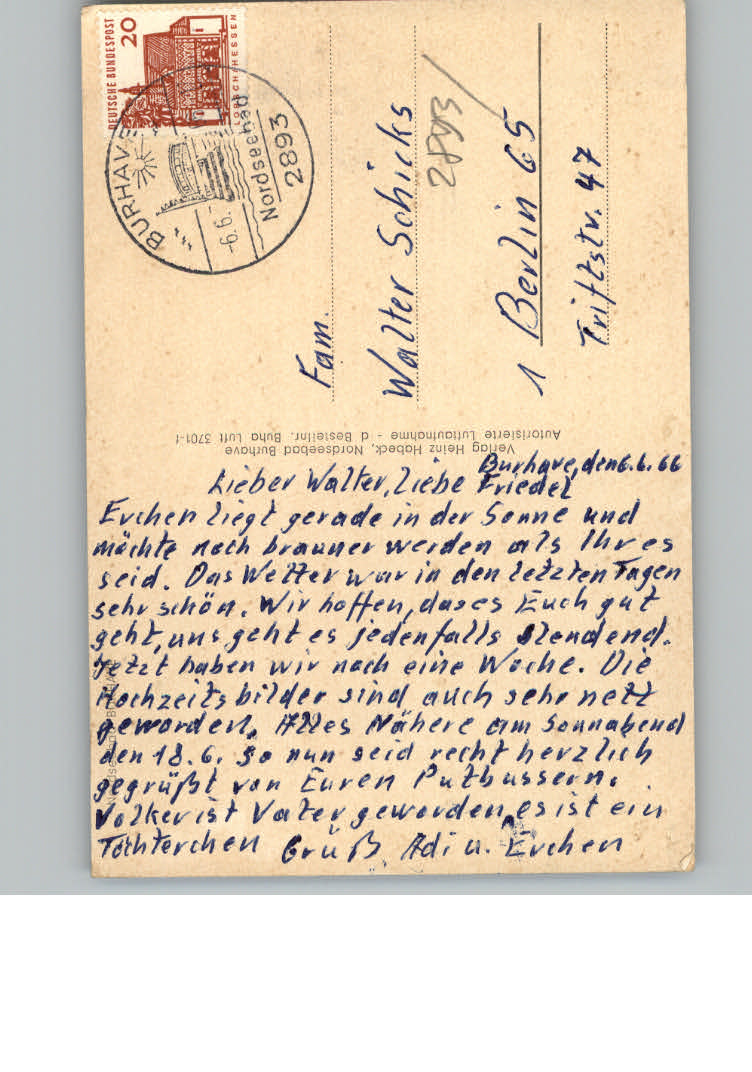 DEUTSCHE BUNDESPOST
20
LORSCH/HESSEN
BURHAVE
-6.6.
Nordseebad
2893
Fam.
Walter Schicks
2893
1 Berlin 65
Triftstr. 47
Verlag Heinz Habeck, Nordseebad Burhave
Autorisierte Luftaufnahme - d Bestellnr. Buha Luft 3701-f
Burhave, den 6.6.66
Lieber Walter, liebe Friedel
Evchen liegt gerade in der Sonne und
möchte noch brauner werden als Ihr es
seid. Das Wetter war in den letzten Tagen
sehr schön. Wir hoffen, dass es Euch gut
geht, uns geht es jedenfalls blendend.
Jetzt haben wir noch eine Woche. Die
Hochzeitsbilder sind auch sehr nett
geworden. Alles Nähere am Sonnabend
den 18.6. So nun seid recht herzlich
gegrüßt von Euren Putbussern.
Volker ist Vater geworden, es ist ein
Töchterchen Gruß Adi u. Evchen